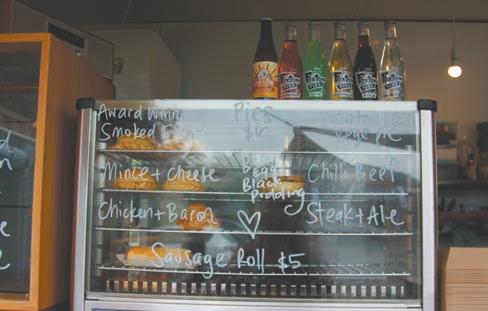 Award Winning
Smoked Fish
Pies
$6
Potato
Vege Pie
Mince + Cheese
Bacon
Egg
Black
Pudding
Chilli Beef
Chicken + Bacon
Steak + Ale
Sausage Roll $5